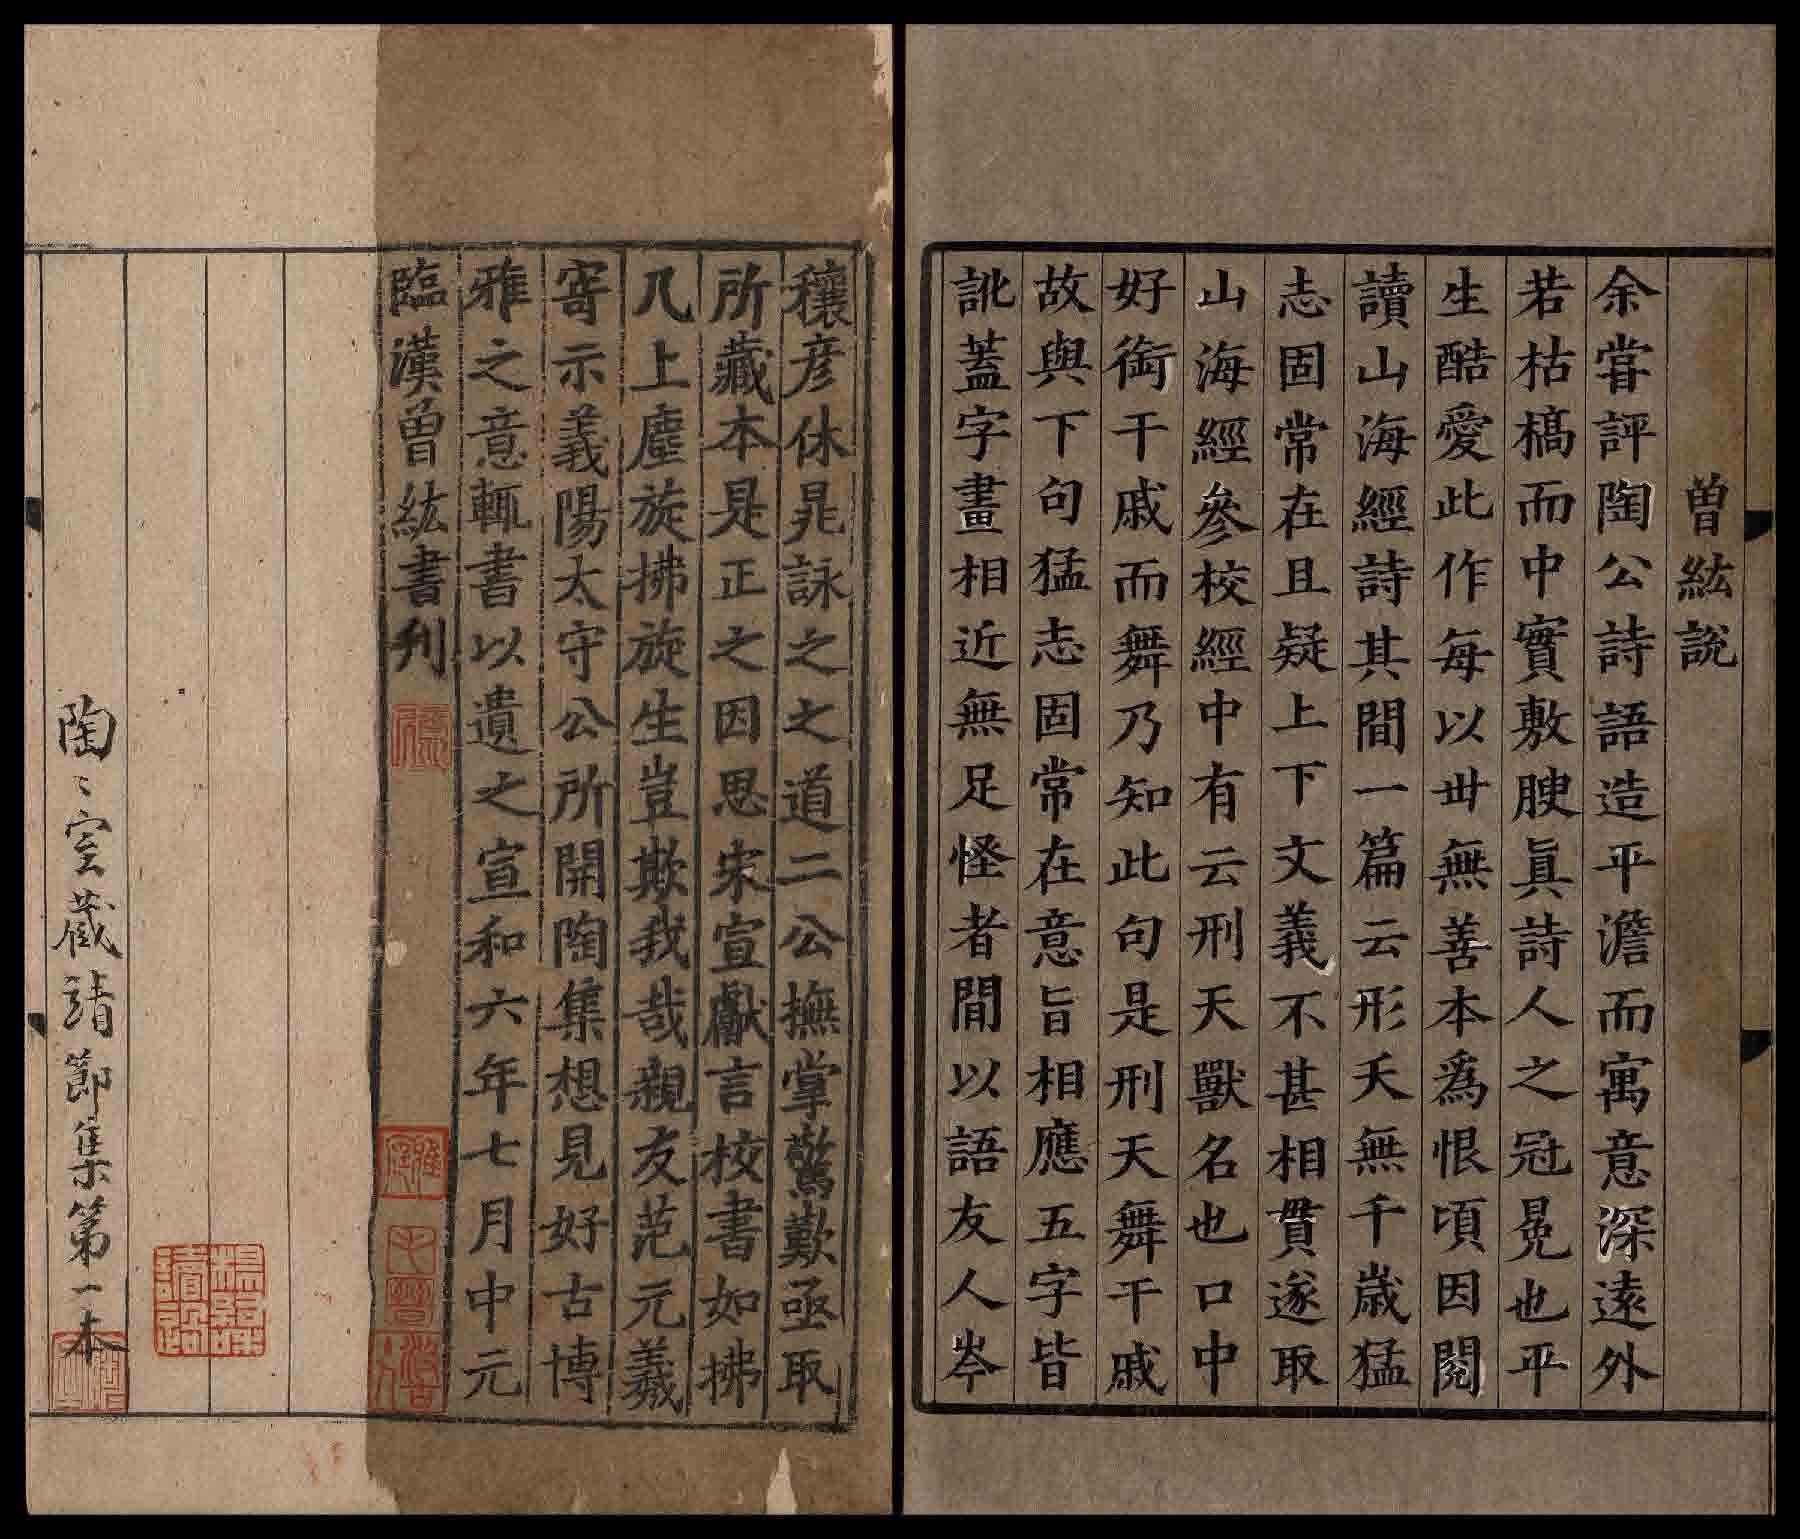 曽紘說
余甞評陶公詩語造平澹而寓意深遠外
若枯槁而中實敷腴眞詩人之冠冕也平
生酷愛此作每以丗無善本爲恨頃因閱
讀山海經詩其間一篇云形夭無千歲猛
志固常在且疑上下文義不甚相貫遂取
山海經參校經中有云刑天獸名也口中
好銜干戚而舞乃知此句是刑天舞干戚
故與下句猛志固常在意旨相應五字皆
訛蓋字畫相近無足怪者間以語友人岑
穰彥休晁詠之之道二公撫掌驚歎亟取
所藏本是正之因思宋宣獻言校書如拂
几上塵旋拂旋生豈欺我哉親友范元羲
寄示義陽太守公所開陶集想見好古博
雅之意輒書以遺之宣和六年七月中元
臨漢曽紘書刋
陶〻室藏靖節集第一本